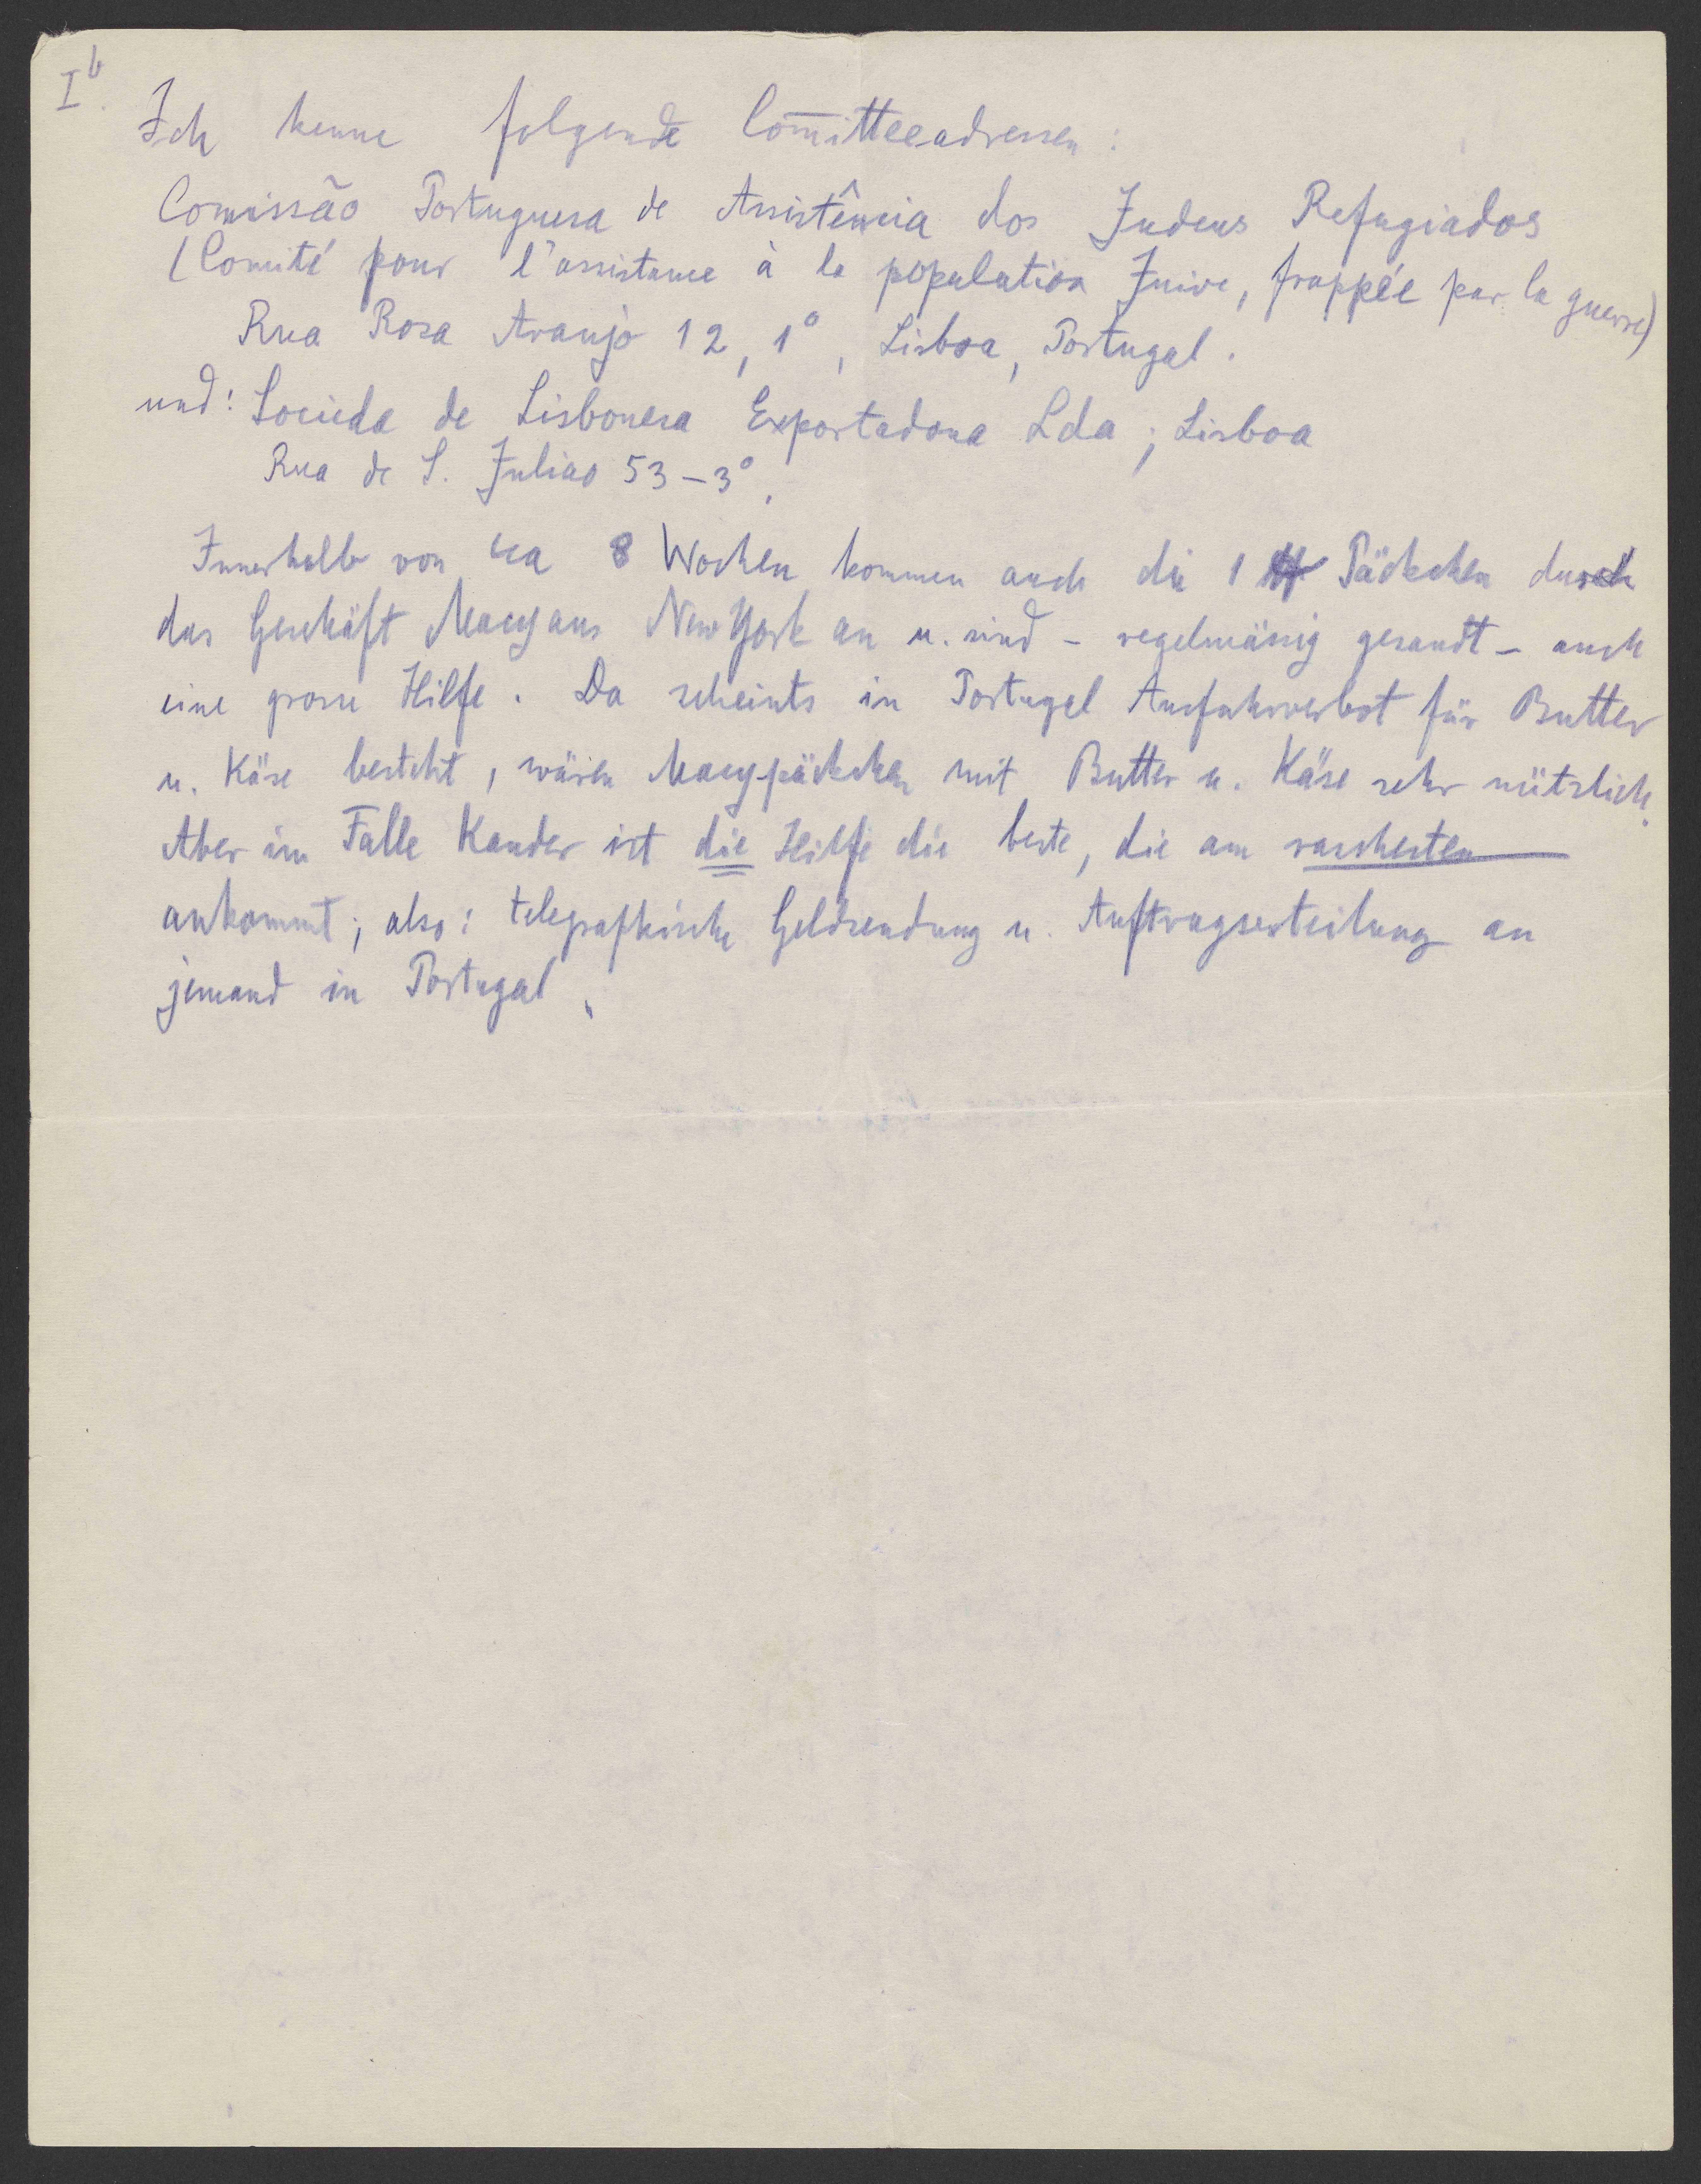 I b.
Ich kenne folgende Com̅itteeadressen:
Comissão Portuguesa de Assistência dos Judeus Refugiados
(Comité pour l'assistance à la population Juive, frappée par la guerre)
Rua Rosa Araujo 12, 1°, Lisboa, Portugal.
und: Socieda de Lisbonesa Exportadora Lda; Lisboa
Rua de S. Juliao 53-3°,
Innerhalb von ca 8 Wochen kommen auch die 1 ℔ Päckchen durch
das Geschäft Macy aus New York an u. sind - regelmässig gesandt - auch
eine grosse Hilfe. Da scheints in Portugal Ausfuhrverbot für Butter
u. Käse besteht, wären Macypäckchen mit Butter u. Käse sehr nützlich.
Aber im Falle Kander ist die Hilfe die beste, die am raschesten
ankommt; also: telegraphische Geldsendung u. Auftragserteilung an
jemand in Portugal.